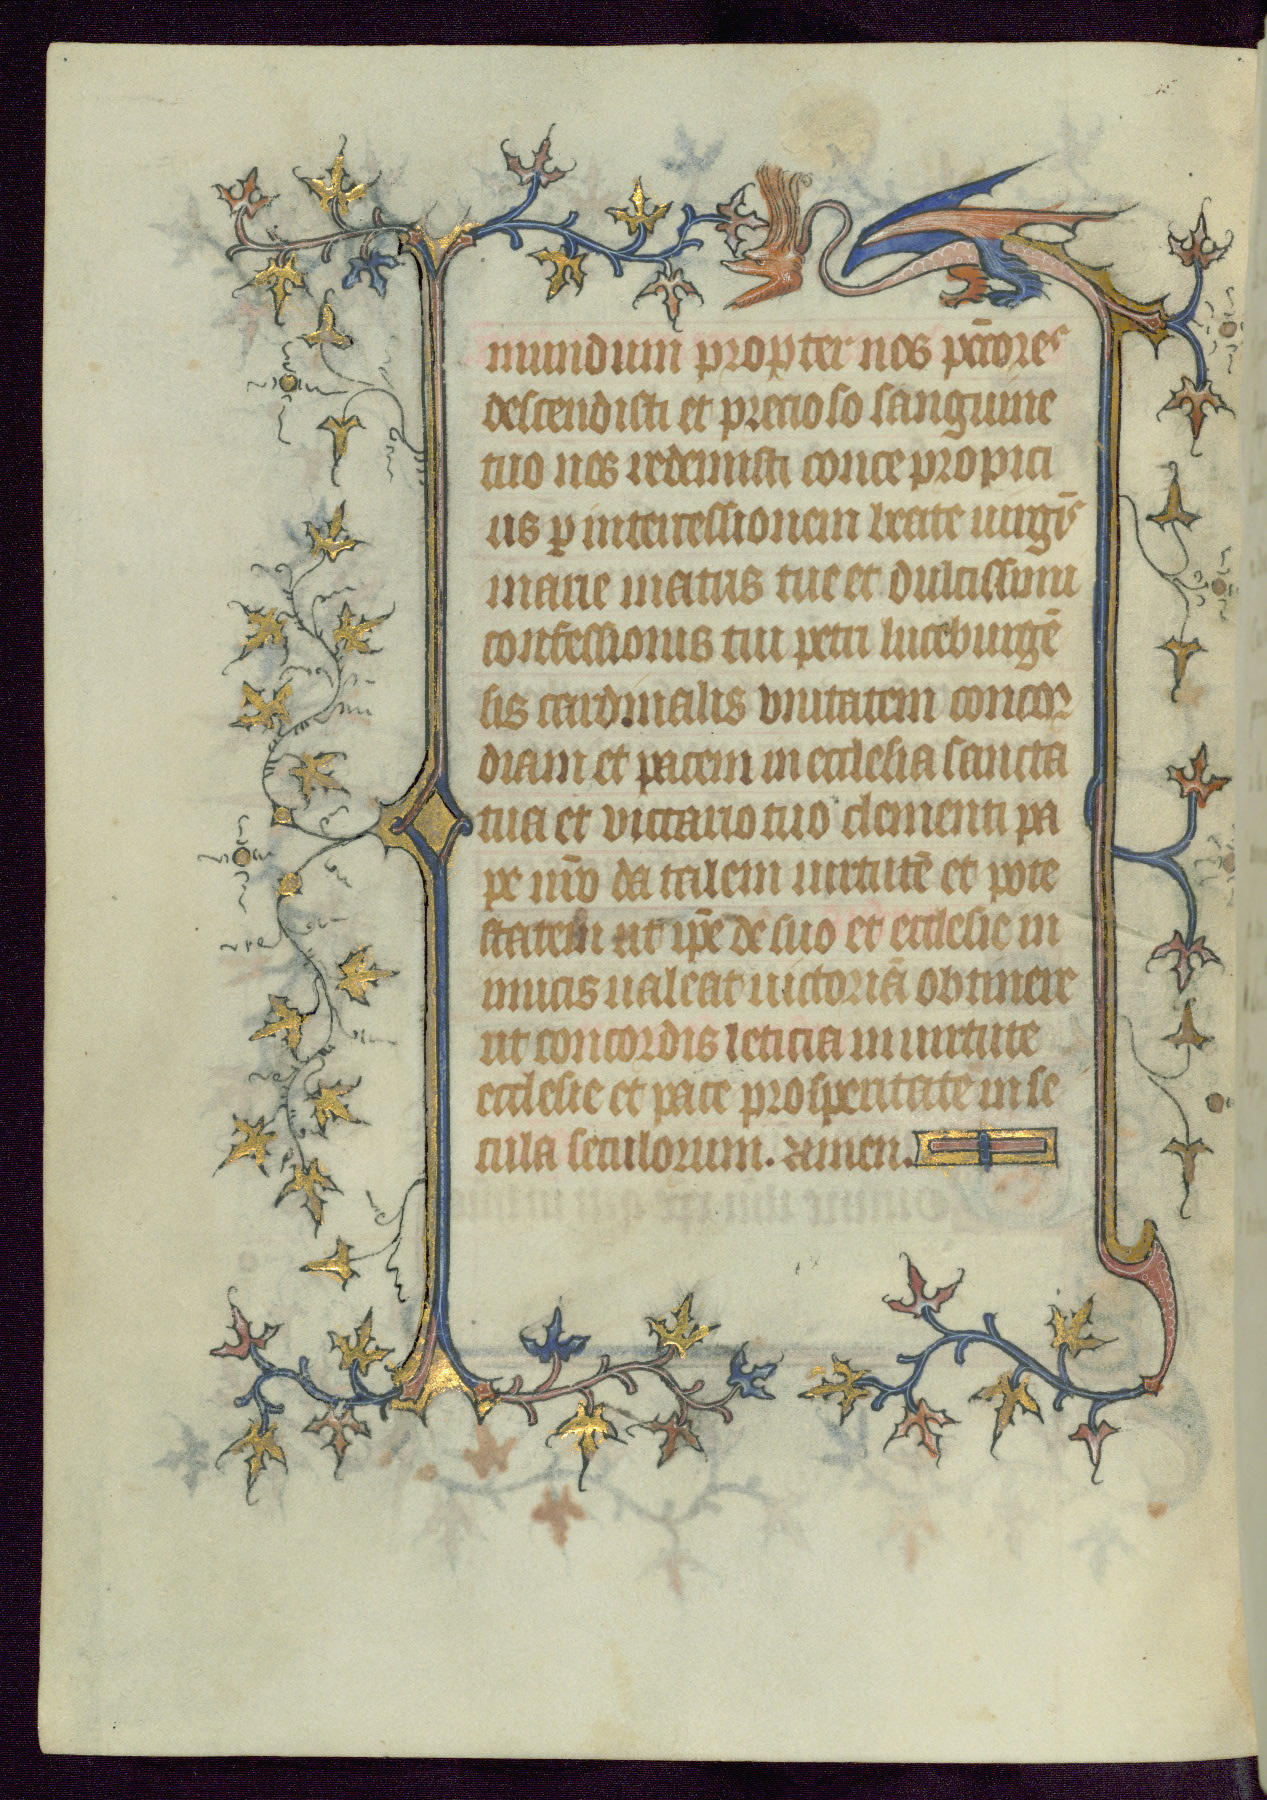 mundum propter nos pctōres
descendisti et precioso sanguine
tuo nos redemisti conce propici
us ꝑ intercessionem beate uirgīs
marie matris tue et dulcissimi
confessioris tui petri luceburgē
sis cardinalis vnitatem concor
diam et pacem in ecclesia sancta
tua et viccario tuo clementi pa
pe nr̄o da talem uirtutē et pote
statem ut ip̄e de suo et ecclesie in
imicis ualeat uictoriā obtinere
ut concordis leticia in uirtute
ecclesie et pace prosperitate in se
cula seculorum. amen.